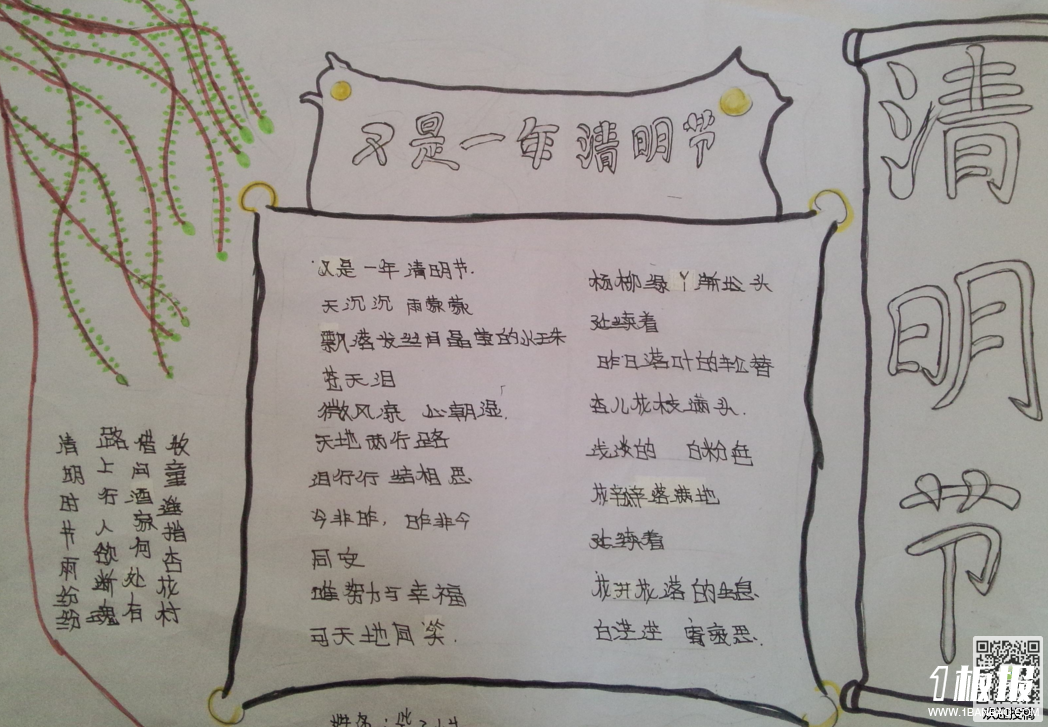 又是一年清明节
又是一年清明节.
天沉沉 雨蒙蒙
飘落发丝月晶莹的水珠
苍天泪
微风哀 心朝湿.
天地两行路
泪行行 结相思
今非昨, 昨非今
同安
唯努力与幸福
可天地同笑.
杨柳绿丫渐出头
延续着
昨日落叶的轮替
杏儿花枝满头.
浅淡的 白粉色
落满地
延续着
花开花落的生息.
白茫茫 寄哀思.
清明节
清明时节雨纷纷
路上行人欲断魂
借问酒家何处有
牧童遥指杏花村
1板报
WWW.1BANBAO.COM